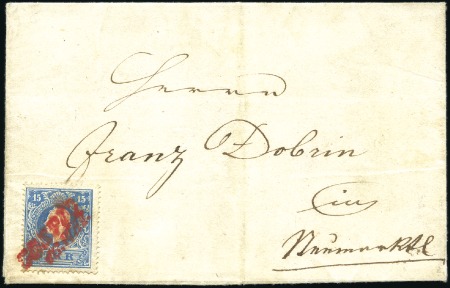 Herrn
Franz Dobrin
in
Neumarktl
15 15